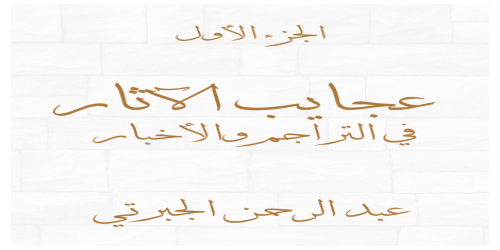 الجزء الأول
عجايب الآثار
في التراجم والأخبار
عبد الرحمن الجبرتي